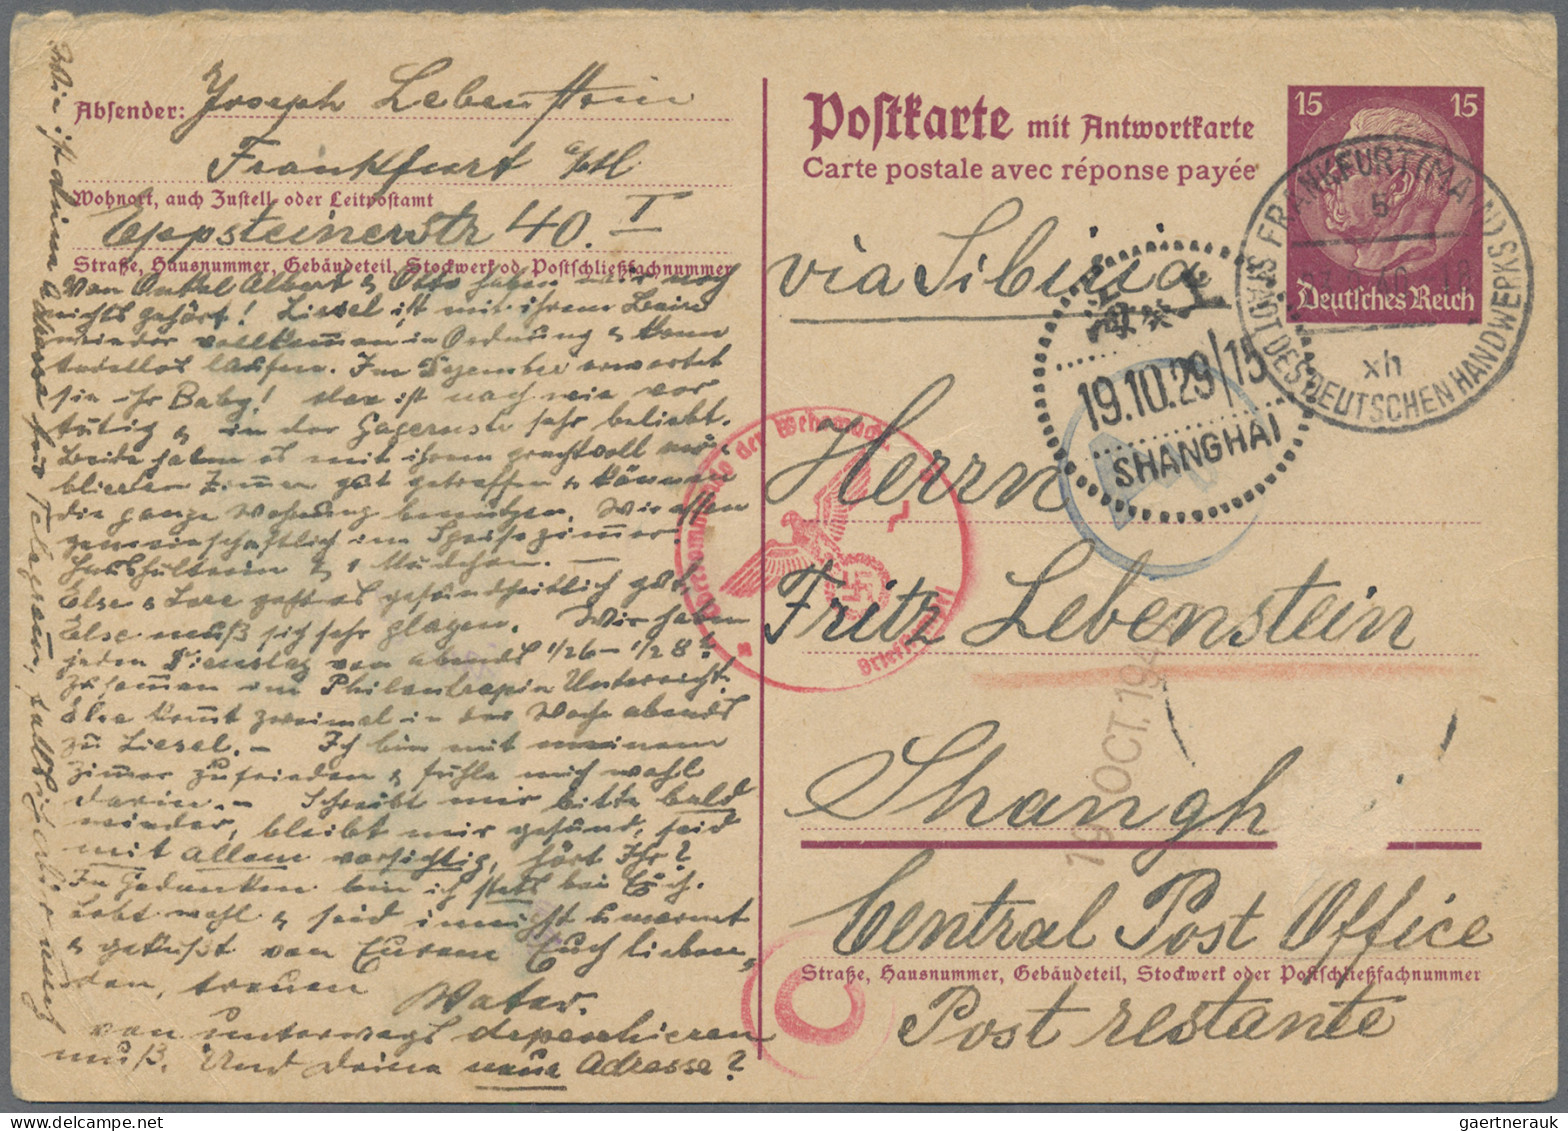 Absender: Joseph Lebenstein
Frankfurt a/M.
Wohnort, auch Zustell- oder Leitpostamt
Eppsteinerstr 40. I
Straße, Hausnummer, Gebäudeteil, Stockwerk od Postschließfachnummer
Von Onkel Albert & Otto haben wir noch
nichts gehört! Liesel ist mit ihrem Bein
wieder vollkommen in Ordnung & kann
tadellos laufen. Im Dezember erwartet
sie ihr Baby! ist nach wie vor
tätig & in der sehr beliebt.
Beide haben es mit ihrem prachtvoll mö-
blierten Zimmer gut getroffen & können
die ganze Wohnung benützen. Wir essen
gemeinschaftlich im Speisezimmer.
& 1 Mädchen. —
Else & Lore geht es gesundheitlich gut,
Else muß sich sehr plagen. Wir haben
jeden Dienstag von abends 1/2 6 – 1/2 8 h
zusammen im Philantropin Unterricht.
Else kommt zweimal in der Woche abends
zu Liesel. – Ich bin mit meinem
Zimmer zufrieden & fühle mich wohl
darin. – Schreibt mir bitte bald
wieder, bleibt mir gesund, seid
mit allem vorsichtig, hört Ihr?
In Gedanken bin ich stets bei Euch.
Lebt wohl & seid innigst umarmt
& geküßt von Eurem Euch lieben-
den, treuen Vater.
Wie ist deine Adresse für Telegramm, falls ich
von unterwegs depeschieren
muß. Und deine neue Adresse?
Postkarte mit Antwortkarte
Carte postale avec réponse payée
15 15
Deutsches Reich
FRANKFURT (MAIN)
5
xh
STADT DES DEUTSCHEN HANDWERKS
via Sibiria
19.10.29/15
SHANGHAI
Oberkommando der Wehrmacht
Briefstempel
Herrn
Fritz Lebenstein
19 OCT. 194
Shangh
Central Post Office
Straße, Hausnummer, Gebäudeteil, Stockwerk oder Postschließfachnummer
Post restante
gaertnerauk